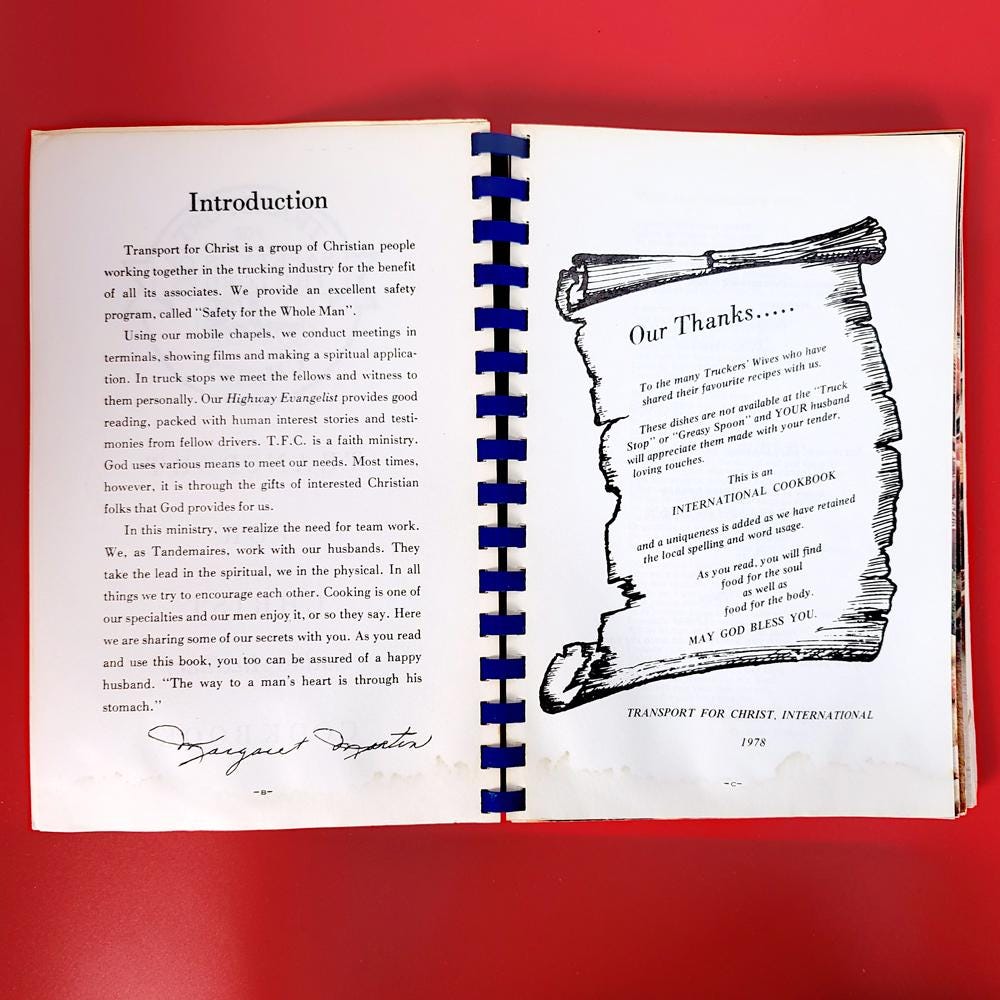 Introduction
Transport for Christ is a group of Christian people
working together in the trucking industry for the benefit
of all its associates. We provide an excellent safety
program, called "Safety for the Whole Man".
Using our mobile chapels, we conduct meetings in
terminals, showing films and making a spiritual applica-
tion. In truck stops we meet the fellows and witness to
them personally. Our Highway Evangelist provides good
reading, packed with human interest stories and testi-
monies from fellow drivers. T.F.C. is a faith ministry.
God uses various means to meet our needs. Most times,
however, it is through the gifts of interested Christian
folks that God provides for us.
In this ministry, we realize the need for team work.
We, as Tandemaires, work with our husbands. They
take the lead in the spiritual, we in the physical. In all
things we try to encourage each other. Cooking is one of
our specialties and our men enjoy it, or so they say. Here
we are sharing some of our secrets with you. As you read
and use this book, you too can be assured of a happy
husband. "The way to a man's heart is through his
stomach."
Margaret Martin
-B-
Our Thanks.....
To the many Truckers' Wives who have
shared their favourite recipes with us.
These dishes are not available at the "Truck
Stop" or "Greasy Spoon" and YOUR husband
will appreciate them made with your tender,
loving touches.
This is an
INTERNATIONAL COOKBOOK
and a uniqueness is added as we have retained
the local spelling and word usage.
As you read, you will find
food for the soul
as well as
food for the body.
MAY GOD BLESS YOU.
TRANSPORT FOR CHRIST, INTERNATIONAL
1978
-C-